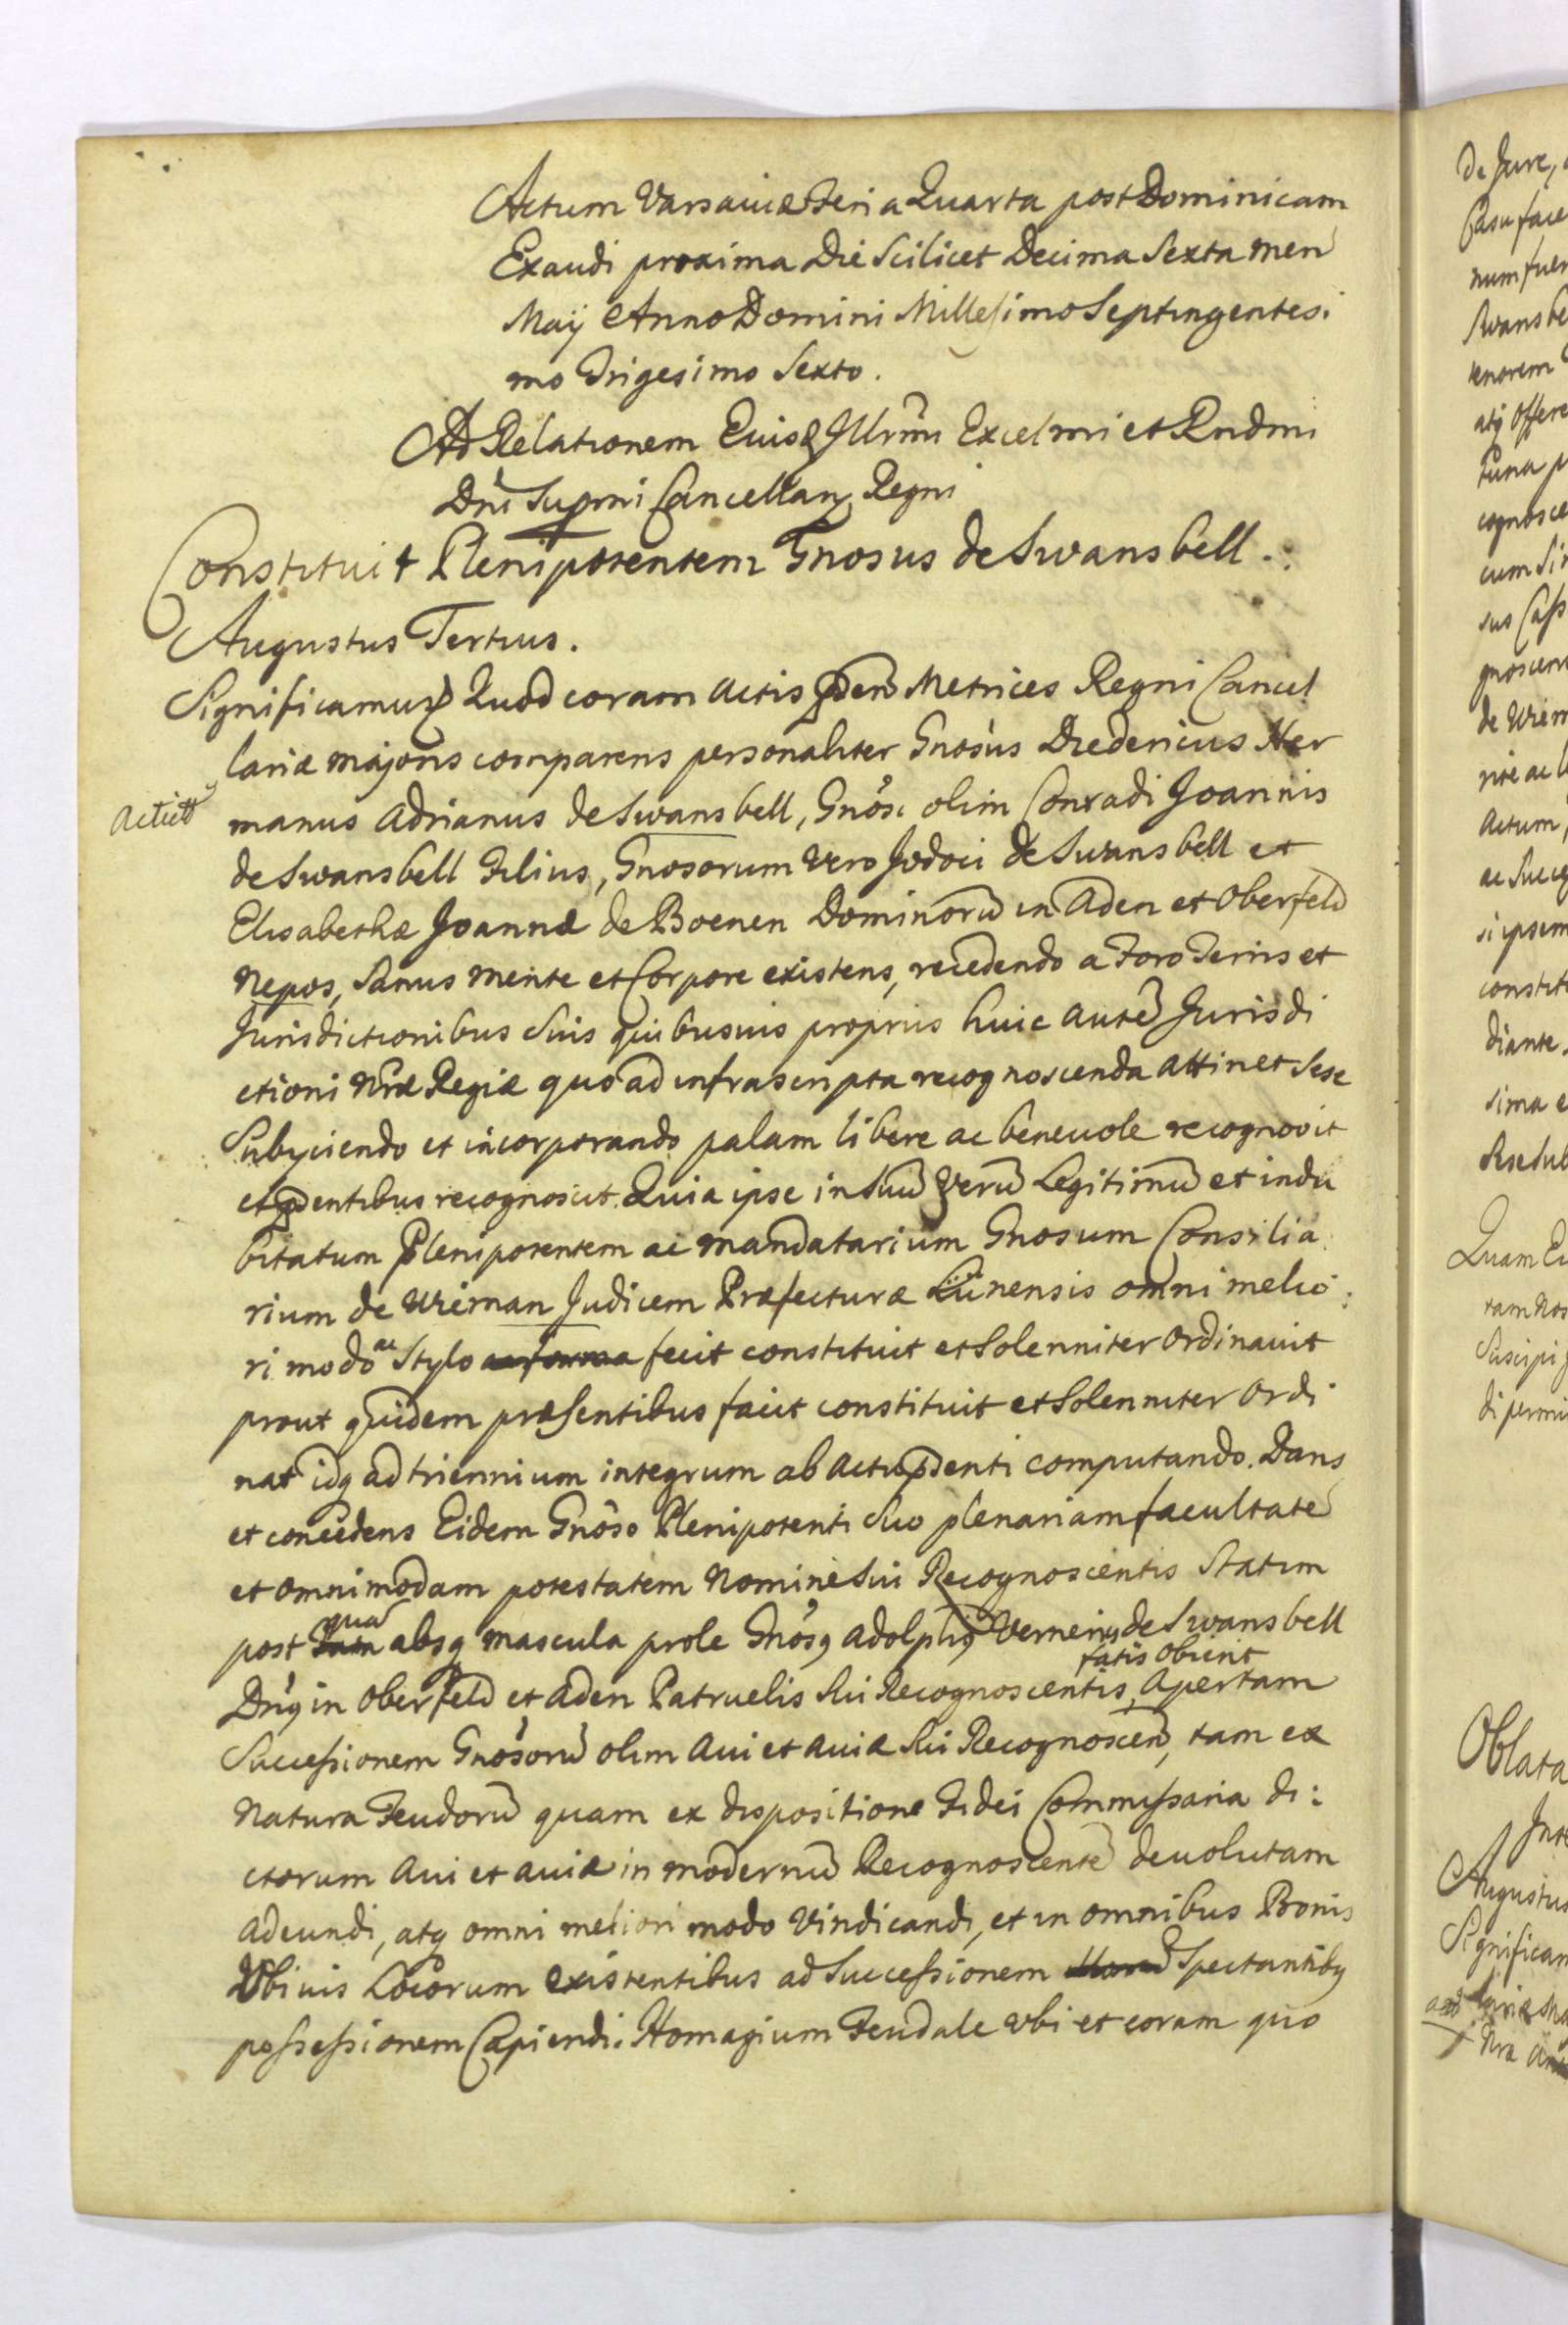 Actum Varsaviæ Feria Quarta post Dominicam
Exaudi proxima Die Scilicet Decima Sexta men
Maÿ Anno Domini Millesimo Septingentesi
mo Trigesimo Sexto.
Ad Relationem Eiusd Illrmi Excelmi et Rndmi
Dni Supmi Cancellarÿ Regni
Constituit Plenipotentem Gnosus de Swansbell.
Augustus Tertius.
Significamus Quod coram Actis pden Metrices Regni Cancel
lariæ majoris comparens personaliter Gnosus Diedericus Her
manus Adrianus de Swansbell, Gnosi olim Conradi Joannis
de Swansbell Filius, Gnosorum vero Jodoci de Swansbell et
Elisabethæ Joannæ de Boenen Dominoru in Aden et Oberfeld
Nepos, Sanus mente et Corpore existens, recedendo a Foro Terris et
Jurisdictionibus Suis quibusuis proprÿs huic aute Jurisdi
ctioni Nræ Regiæ quo ad infrascripta recognoscenda attinet Sese
Subÿciendo et incorporando palam libere ac beneuole recognovit
et pdentibus recognoscit. Quia ipse in Suu Veru Legitimu et indu
bitatum Plenipotentem ac Mandatarium Gnosum Consilia
rium de Wieman Judicem Præfecturæ Lünensis omni melio:
ri modo ac Stylo ac forma fecit constituit et Solenniter Ordinauit
prout quidem præsentibus facit constituit et Solenniter Ordi
nat idq ad triennium integrum ab Actu pdenti computando. Dans
et concedens Eidem Gnoso Plenipotenti Suo plenariam facultate
et omnimodam potestatem Nomine Sui Recognoscentis Statim
post qua absq mascula prole Gnosq Adolphq Vernerq de Swansbell
fatis obierit
Dnq in Oberfeld et Aden Patruelis Sui Recognoscentis, Apertam
Successionem Gnosoru olim Aui et Auiæ Sui Recognoscen, tam ex
Natura Feudoru quam ex dispositione Fidei Commissaria di:
ctorum Aui et auiæ in modernu Recognoscente deuolutam
adeundi, atq omni meliori modo Vindicandi, et in omnibus Bonis
Vbiuis Locorum existentibus ad Successionem Spectantibq
possessionem Capiendi. Homagium Feudale vbi et coram quo
Acticet
De Jure,
Casu face
num fuer
Swansbe
tenorem
atq offere
tuna p
cognosce
cum Si
sus Cass
gnoscen
de Wiem
rite ac l
Actum,
ac Succ
si ipsem
constit
diante
sima e
Sese Sub
Quam E
ram Nos
Suscipi
di permi
Oblata
Augustus
Significam
lariæ Ma
Nra